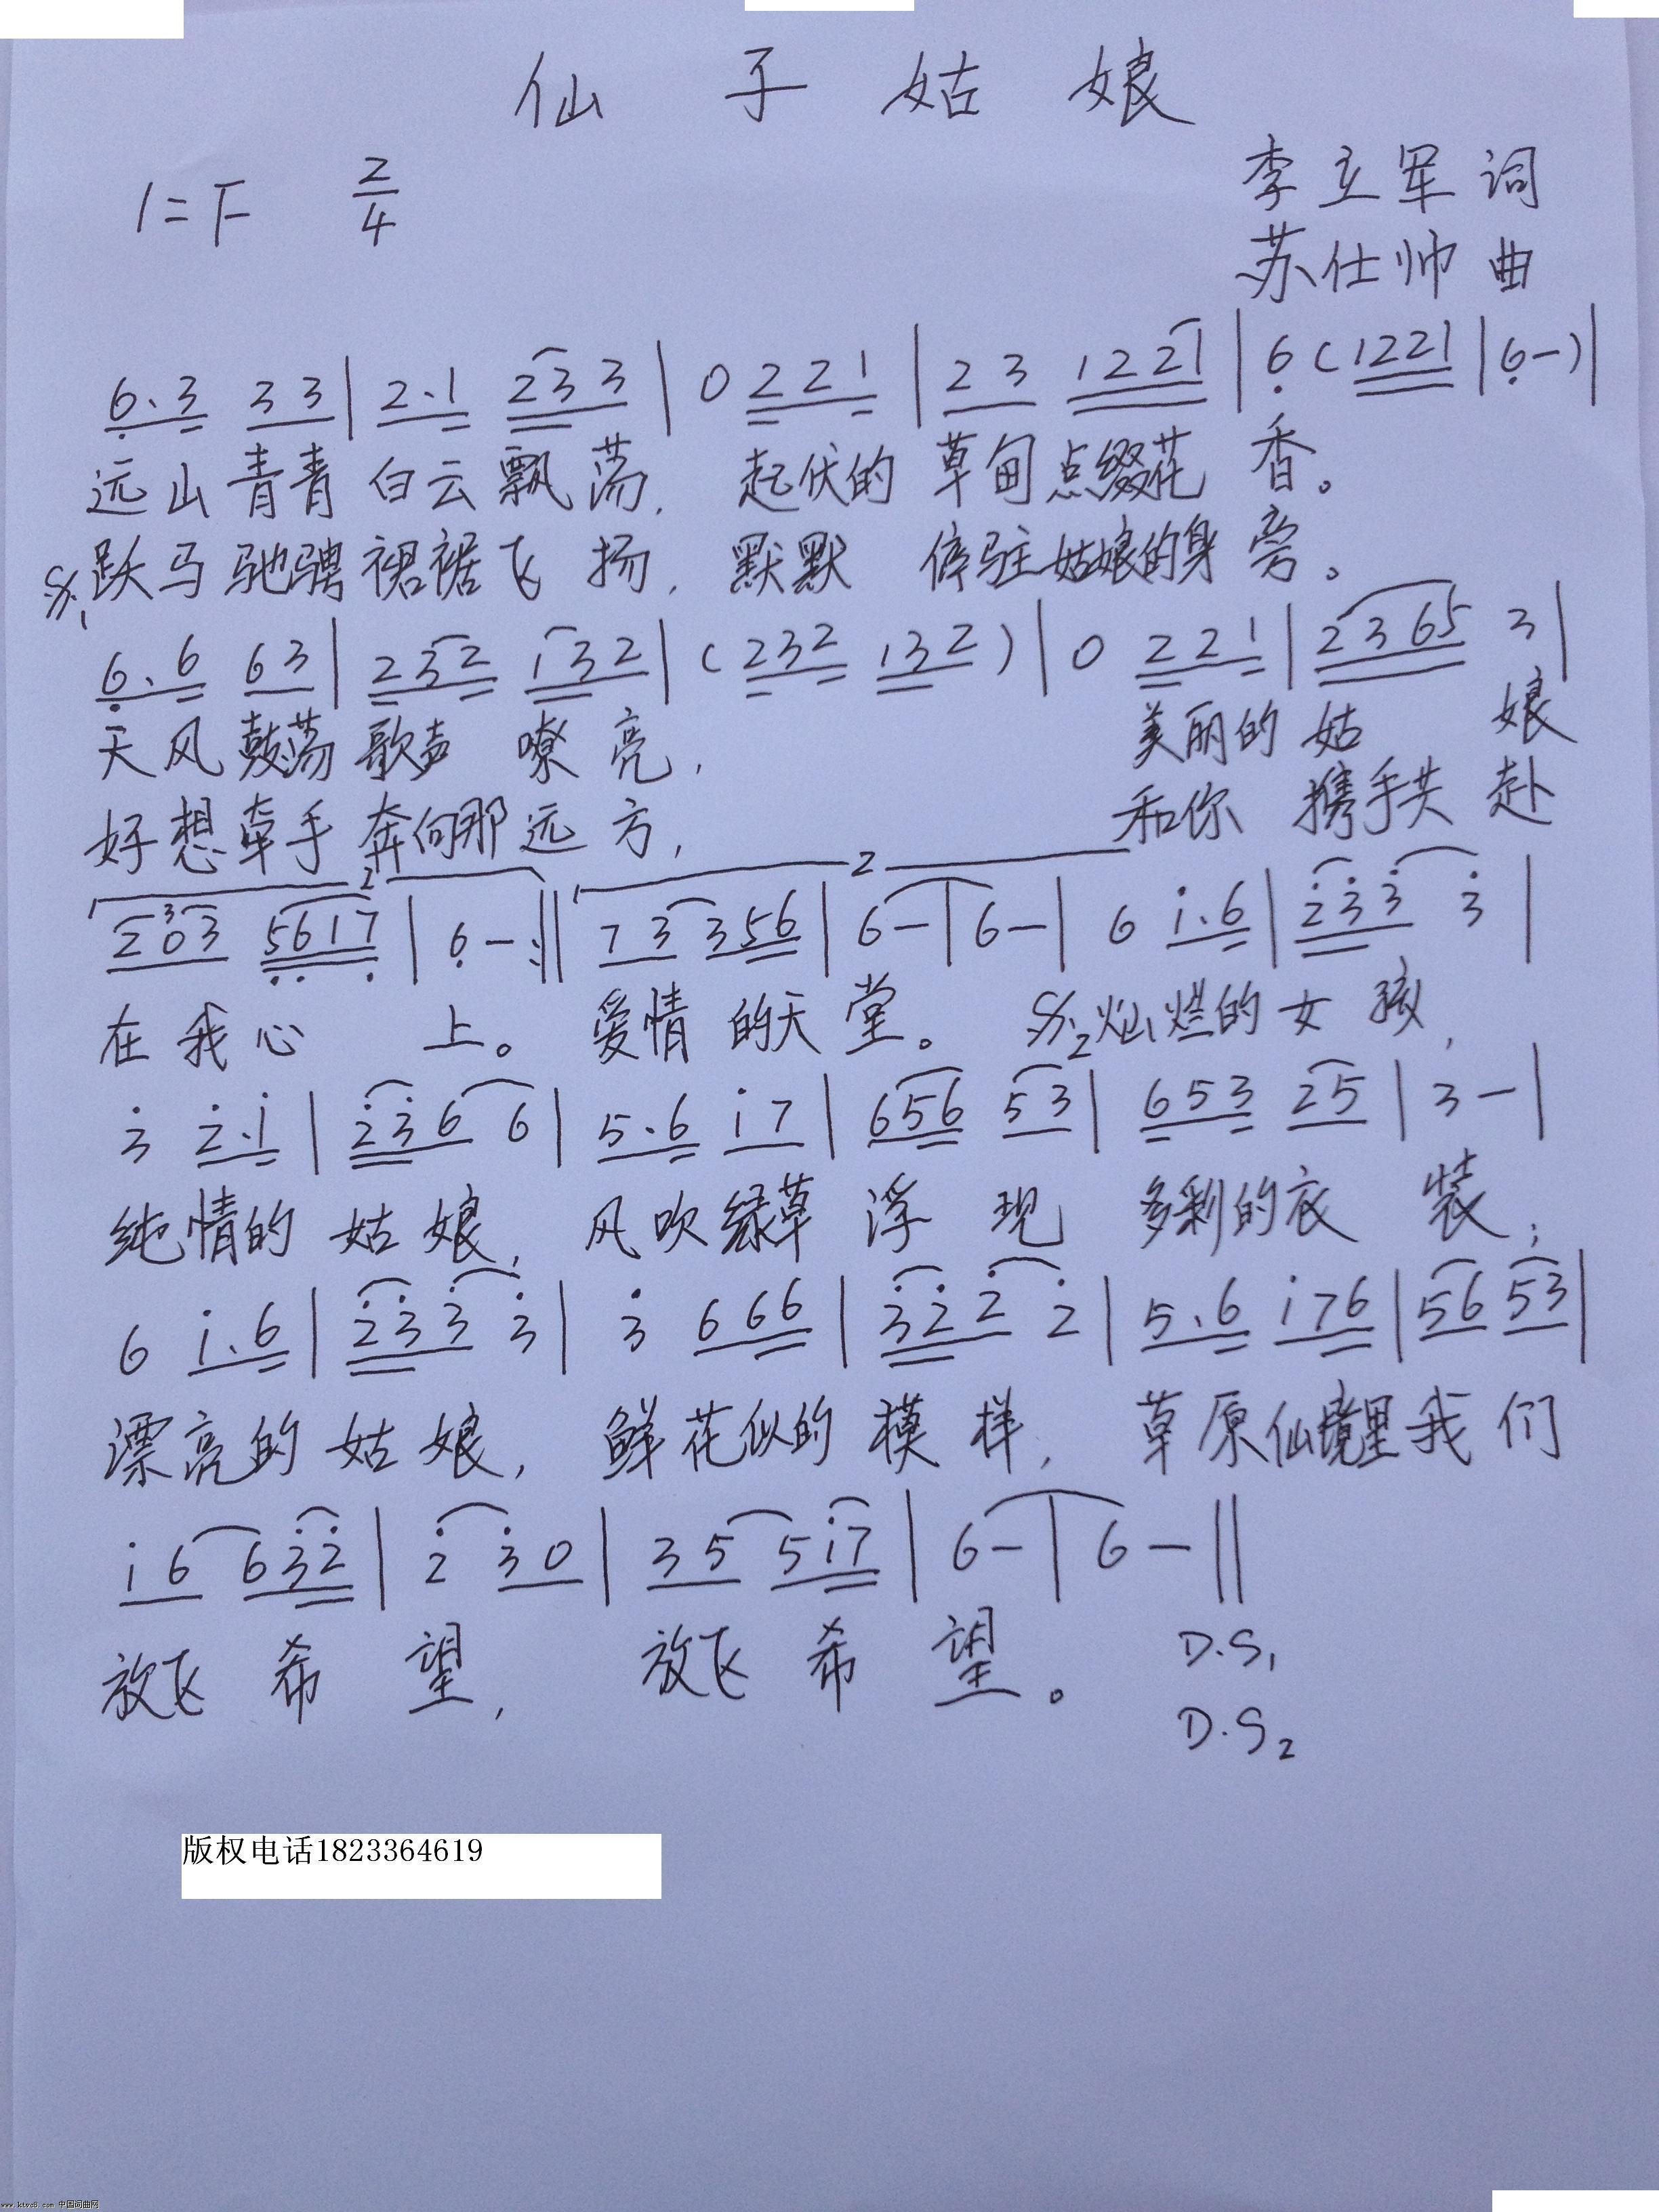 仙子姑娘
1=F 2/4
李立军 词
苏仕帅 曲
6.3 33 | 2.1 233 | 0 221 | 23 1221 | 6 (1221 | 6-) |
远山青青白云飘荡, 起伏的草甸点缀花香。
跃马驰骋裙裾飞扬, 默默 停驻姑娘的身旁。
6.6 63 | 232 132 | (232 132) | 0 221 | 2365 3 |
天风鼓荡歌声嘹亮, 美丽的姑娘
好想牵手奔向那远方, 和你携手共赴
203 5617 | 6- :|| 73 356 | 6- | 6- | 6 i.6 | 233 3 |
在我心上。 爱情的天堂。 灿烂的女孩,
3 2.i | 236 6 | 5.6 i7 | 656 53 | 653 25 | 3- |
纯情的姑娘, 风吹绿草浮现 多彩的衣装;
6 i.6 | 233 3 | 3 666 | 322 2 | 5.6 i76 | 56 53 |
漂亮的姑娘, 鲜花似的模样, 草原仙境里我们
i6 632 | 2 30 | 35 5i7 | 6- | 6- ||
放飞希望, 放飞希望。
D.S1
D.S2
版权电话1823364619
www.ktvc8.com 中国词曲网